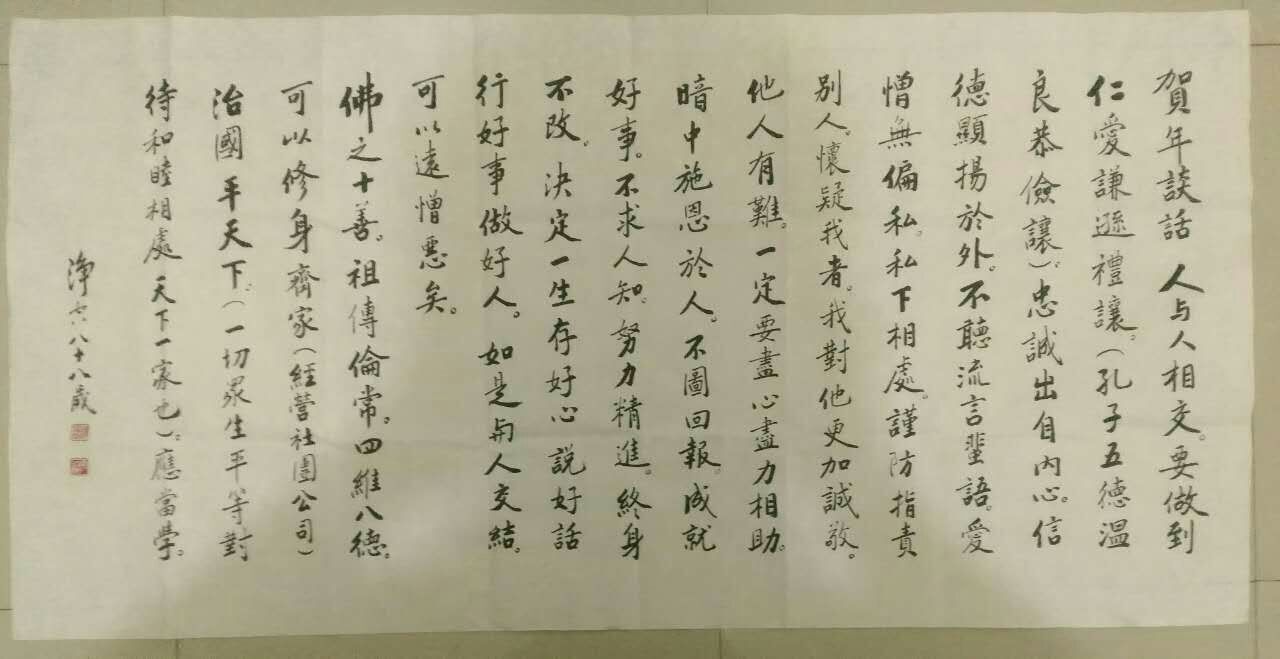 賀年談話 人与人相交。要做到
仁愛謙遜禮讓。(孔子五德温
良恭儉讓)。忠誠出自内心。信
德顯揚於外。不聽流言蜚語。愛
憎無偏私。私下相處。謹防指責
别人。懷疑我者。我對他更加誠敬。
他人有難。一定要盡心盡力相助。
暗中施恩於人。不圖回報。成就
好事。不求人知。努力精進。終身
不改。決定一生存好心説好話
行好事做好人。如是與人交結。
可以遠憎惡矣。
佛之十善。祖傳倫常。四維八德。
可以修身齊家(經營社團公司)
治國平天下。(一切眾生平等對
待和睦相處天下一家也)。應當學。
淨空八十八歲